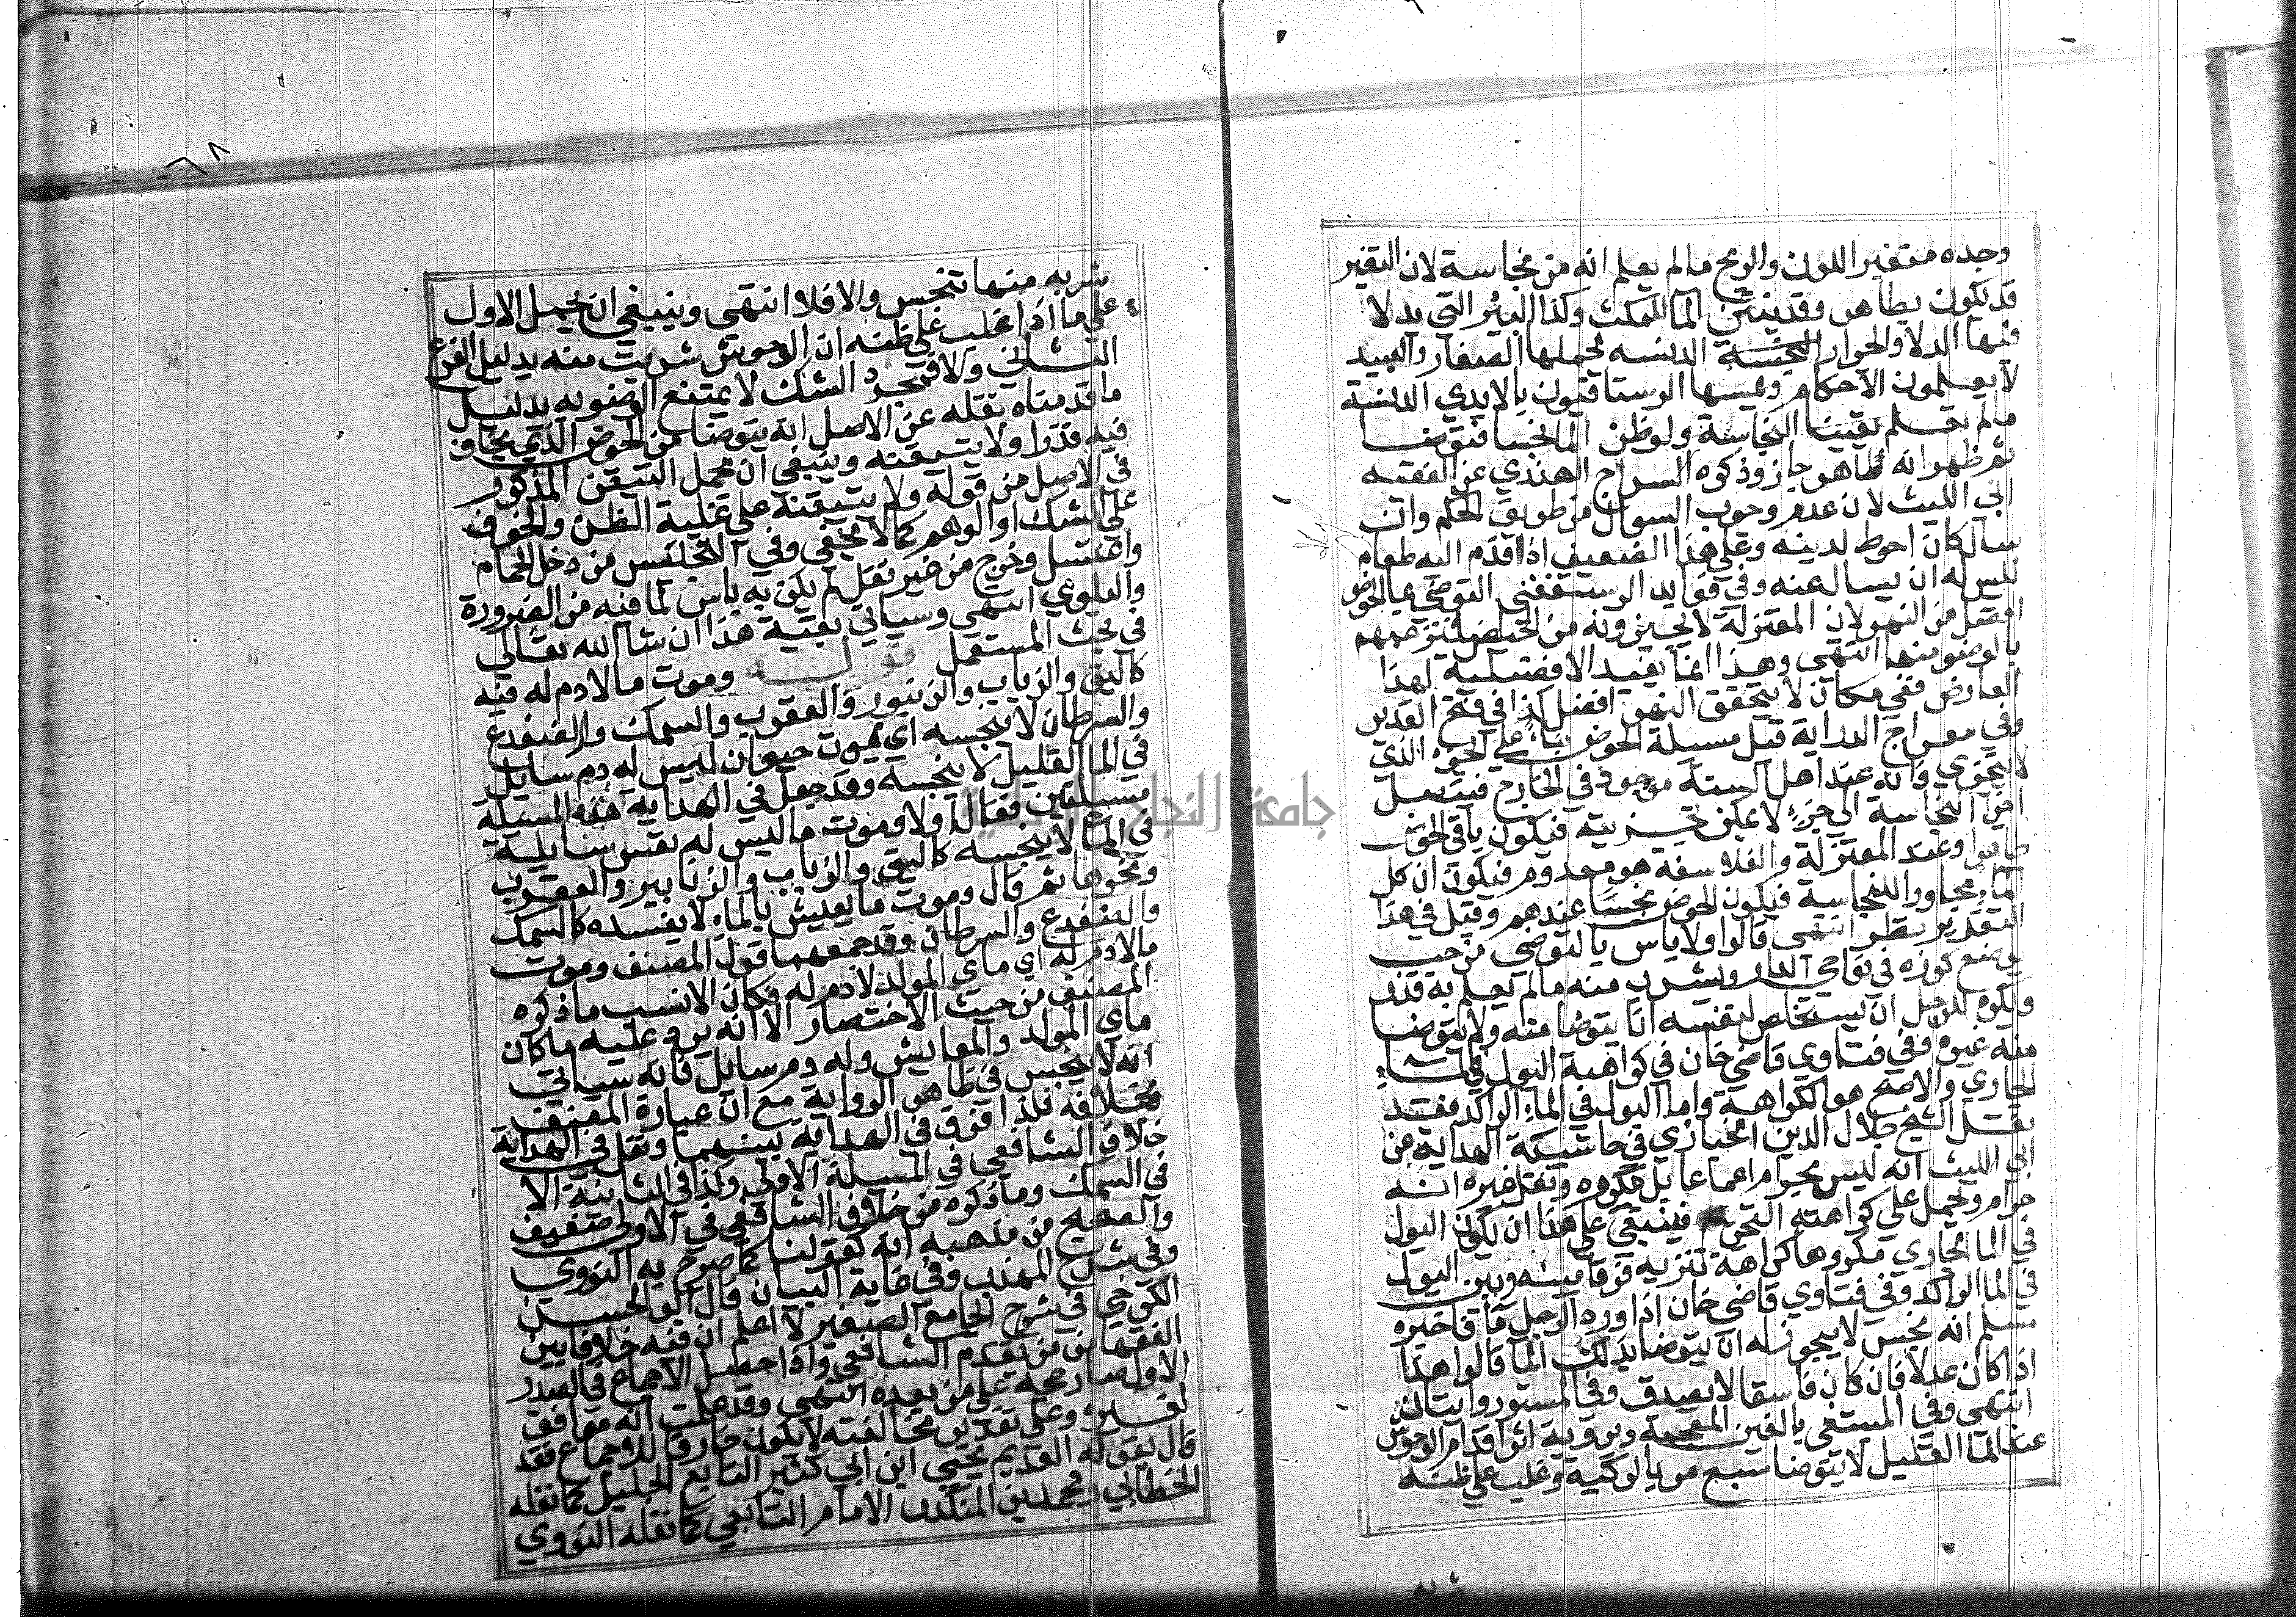 وجده متغير اللون والريح مالم يعلم انه من نجاسة لان التغير
قد يكون بطاهر وقد ينتن الما للمكث وكذا البير التي يدلا
فيها الدلا والجرار الدنسه يحملها الصغار والعبيد
لا يعلمون الاحكام ويمسها الرستاقيون بالايدي الدنسة
مالم يعلم يقينا النجاسة ولو ظن الما نجسا فتوضا
ثم ظهر انه طاهر جاز وذكره السراج الهندي عن الفقيه
ابي الليث لان عدم وجوب السوال من طريق الحكم وان
سال كان احوط لدينه وعلي هذا الضيف اذا قدم اليه طعام
ليس له ان يساله عنه وفي فوايد الرستغفني التوضي بما الحوض
افضل من النهر لان المعتزلة لا يجيزونه من الحياض فيرغمهم
بالوضو منها انتهي وهذا انما يفيد الافضلية لهذا
العارض ففي مكان لا يتحقق النهر افضل كذا في فتح القدير
وفي معراج الدراية قيل مسيلة الحوض بنا علي الجزء الذي
لا يتجزي فانه عند اهل السنة موجود في الخارج فيتصل
اجزا النجاسة الي جزء لا يمكن تجزيته فيكون باقي الحوض
طاهرا وعند المعتزلة والفلاسفه هو معدوم فيكون ان كل
الما مجاورا للنجاسة فيكون الحوض نجسا عندهم وقيل في هذا
التقدير نظر انتهي قالوا ولا باس بالتوضي من حب
يوضع كوزه في نواحي الدار ويشرب منه مالم يعلم به قذر
ويكره للرجل ان يستخلص لنفسه انا يتوضا منه ولا يتوضا
منه غيره وفي فتاوي قاضي خان في كراهية البول في الماء
الجاري والاصح هو الكراهة واما البول في الماء الراكد فقد
نقل الشيخ جلال الدين الخبازي في حاشية الهداية عن
ابي الليث انه ليس بحرام اجماعا بل مكروه ونقل غيره انه
حرام ويحمل علي كراهته التحريم فينبغي علي هذا ان يكون البول
في الما الجاري مكروها كراهة تنزيه فرقا بينه وبين البول
في الما الراكد وفي فتاوي قاضي خان اذا ورد الرجل ما فاخبره
مسلم انه نجس لا يجوز له ان يتوضا بذلك الما قالوا هذا
اذا كان عدلا فان كان فاسقا لا يصدق وفي المستور روايتان
انتهي وفي المبتغي بالغين المعجمة وبروية اثر اقدام الوحوش
عند الما القليل لا يتوضا سبع مر بالركية وغلب علي ظنه
شربه منها تنجس والا فلا انتهي وينبغي ان يحمل الاول
علي ما اذا غلب علي ظنه ان الوحوش شربت منه بدليل الفرع
الثاني والا فمجرد الشك لا يمنع الوضو به بدليل
ما قدمناه نقله عن الاصل انه يتوضا من الحوض الذي يخاف
فيه قذرا ولا يتيقنه وينبغي ان يحمل التيقن المذكور
في الاصل من قوله ولا يتيقنه علي غلبة الظن والخوف
علي الشك او الوهم كما لا يخفي وفي التجنيس من دخل الحمام
واغتسل وخرج من غير نعل لم يكن به باس لما فيه من الضرورة
والبلوي انتهي وسياتي بقية هذا ان شا الله تعالي
في بحث المستعمل قوله وموت مالا دم له فيه
كالبق والذباب والزنبور والعقرب والسمك والضفدع
والسرطان لا ينجسه اي موت حيوان ليس له دم سايل
في الما القليل لا ينجسه وقد جعل في الهداية هذه المسيلة
مسيلتين فقال اولا وموت ما ليس له نفس سايلة
في الما لا ينجسه كالبق والذباب والزنابير والعقرب
ونحوها ثم قال وموت ما يعيش بالماء لا يفسده كالسمك
والضفدع والسرطان وقد جمعهما قول المصنف وموت
مالا دم له اي ماي المولد لا دم له فكان الانسب ما ذكره
المصنف من حيث الاختصار الا انه يرد عليه ما كان
ماي المولد والمعايش وله دم سايل فانه سياتي
انه لا ينجس في ظاهر الرواية مع ان عبارة المصنف
بخلافه فلذا فرق في الهداية بينهما ونقل في الهداية
خلاف الشافعي في المسيلة الاولي وكذا في الثانية الا
في السمك وما ذكره من خلاف الشافعي في الاولي ضعيف
والصحيح من مذهبه انه كقولنا كما صرح به النووي
وفي شرح المهذب وفي غاية البيان قال ابو الحسن
الكرخي في شرح الجامع الصغير لا اعلم ان فيه خلافا بين
الفقها ممن تقدم الشافعي واذا حصل الاجماع في الصدر
الاول صار حجة علي من بعده انتهي وقد علمت انه موافق
لغيره وعلي تقدير مخالفته لا يكون خارقا للاجماع فقد
قال بقوله القديم يحيي ابن ابي كثير التابع الجليل كما نقله
الخطابي ومحمد بن المنكدر الامام التابعي كما نقله النووي
شربه
جامعة النجاح